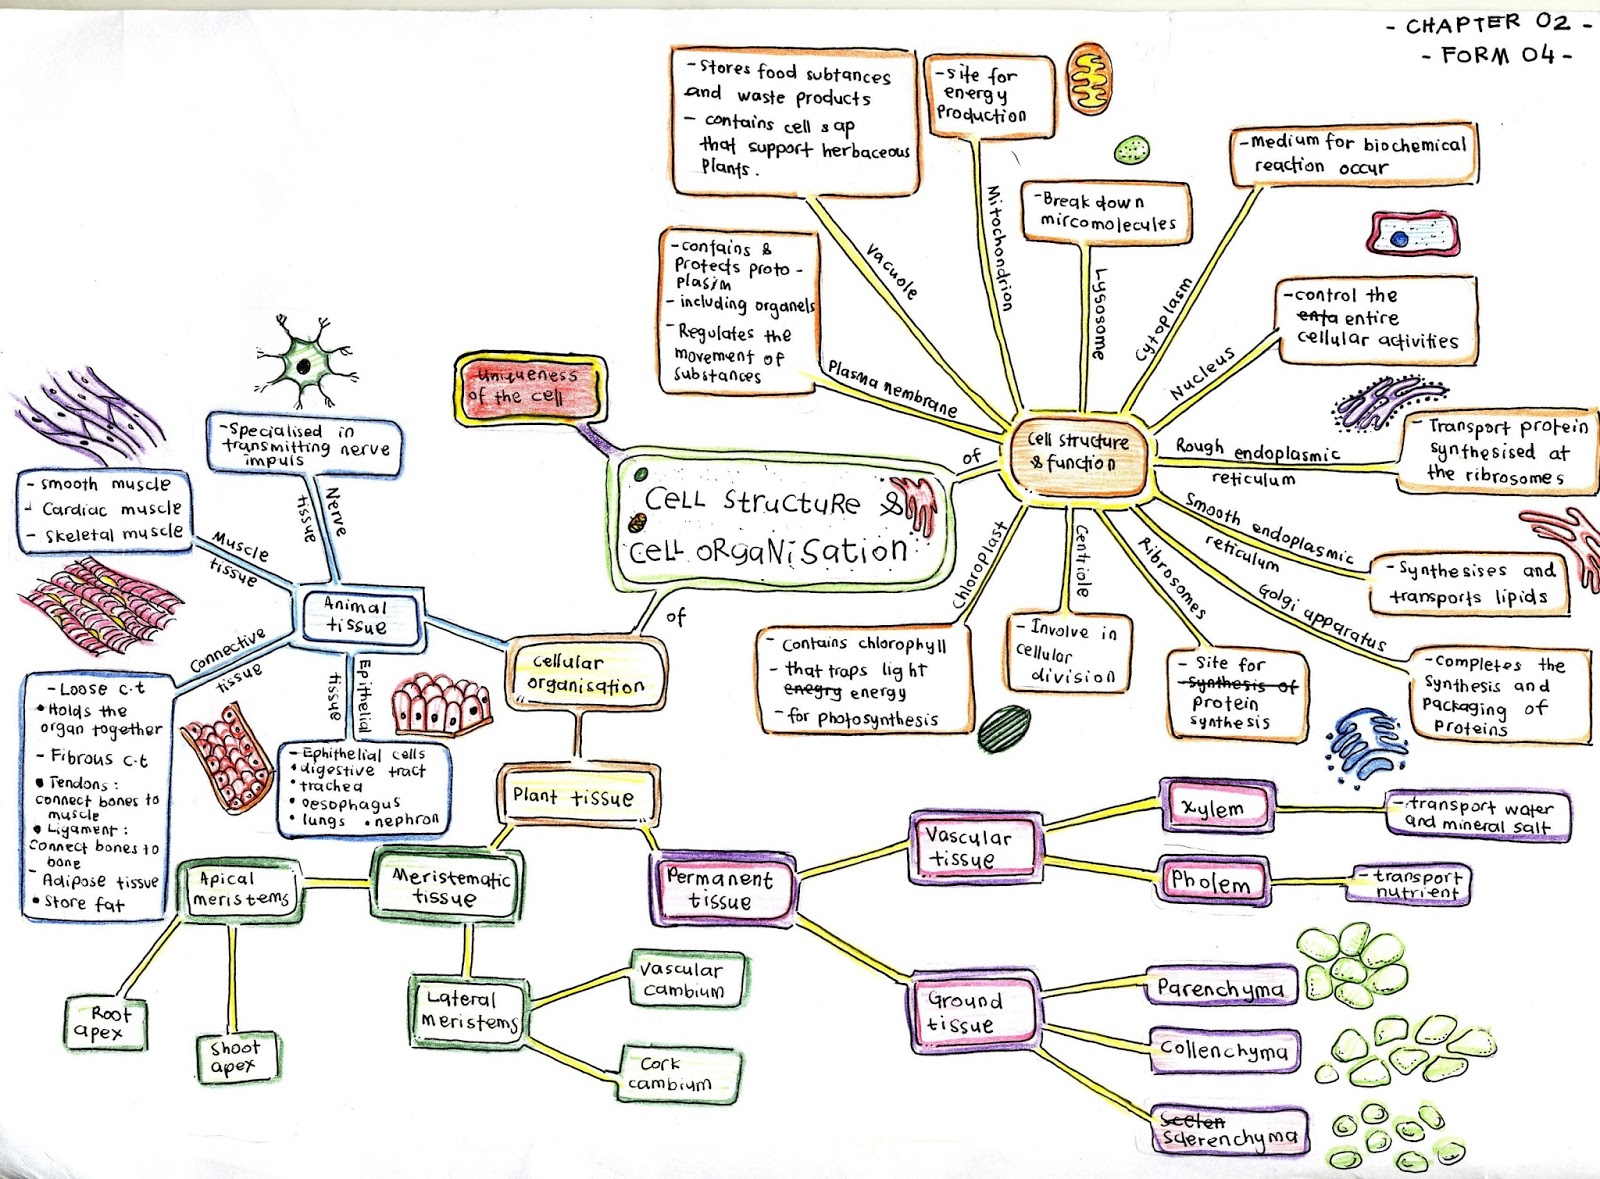 - CHAPTER 02 -
- FORM 04 -
- Stores food subtances
and waste products
- contains cell sap
that support herbaceous
plants.
Vacuole
- Site for
energy
production
Mitochondrion
- Break down
mircomolecules
Lysosome
- Medium for biochemical
reaction occur
Cytoplasm
- control the
enta entire
cellular activities
Nucleus
- contains &
Protects proto -
plasim
- including organels
- Regulates the
movement of
substances
Plasma nembrane
Cell structure
& function
of
Rough endoplasmic
reticulum
- Transport protein
synthesised at
the ribrosomes
Smooth endoplasmic
reticulum
- Synthesises and
transports lipids
Golgi apparatus
- Completes the
synthesis and
packaging of
proteins
Ribrosomes
- Site for
synthesis of
protein
synthesis
Centriole
- Involve in
cellular
division
Chloroplast
- Contains chlorophyll
- that traps light
enegry energy
- for photosynthesis
Uniqueness
of the cell
Cell Structure &
Cell Organisation
of
Cellular
organisation
Animal
tissue
Nerve
tissue
- Specialised in
transmitting nerve
impuls
Muscle
tissue
- smooth muscle
- Cardiac muscle
- Skeletal muscle
Connective
tissue
- Loose c.t
• Holds the
organ together
- Fibrous c.t
• Tendons :
connect bones to
muscle
• Ligament :
connect bones to
bone
- Adipose tissue
• Store fat
Epithelial
tissue
- Ephithelial cells
• digestive tract
• trachea
• oesophagus
• lungs • nephron
Plant tissue
Meristematic
tissue
Apical
meristems
Root
apex
Shoot
apex
Lateral
meristems
Vascular
cambium
Cork
cambium
Permanent
tissue
Vascular
tissue
Xylem
- transport water
and mineral salt
Pholem
- transport
nutrient
Ground
tissue
Parenchyma
Collenchyma
Scelen
Sclerenchyma